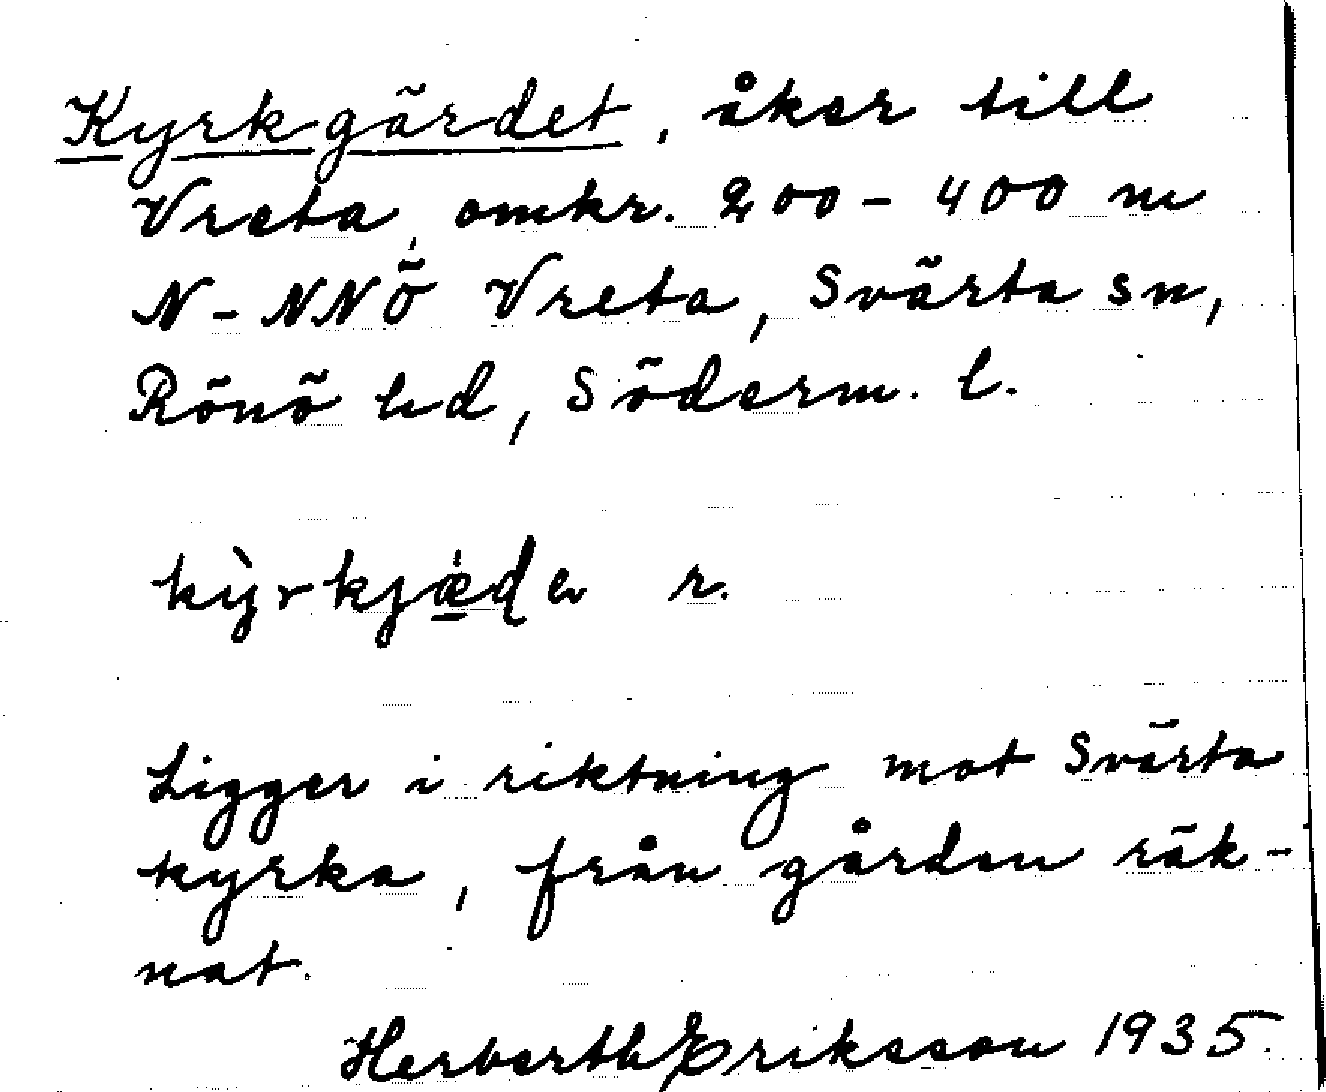 Kyrkgärdet, åker till
Vreta, omkr. 200-400 m
N-NNÖ Vreta, Svärta sn,
Rönö hd, Söderm. l.
r.
Ligger i riktning mot Svärta
kyrka, från gården räk-
nat.
Herberth Eriksson 1935.